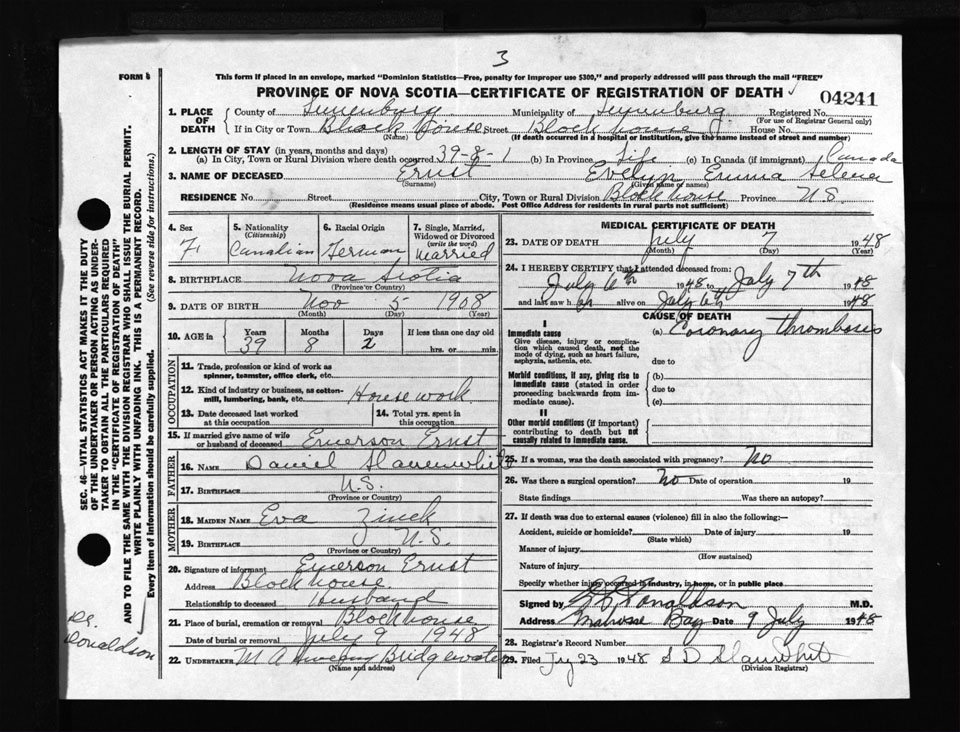 3
FORM 6
This form if placed in an envelope, marked "Dominion Statistics—Free, penalty for improper use $300," and properly addressed will pass through the mail "FREE"
PROVINCE OF NOVA SCOTIA—CERTIFICATE OF REGISTRATION OF DEATH
04241
1. PLACE OF DEATH
County of Lunenburg Municipality of Lunenburg Registered No.
(For use of Registrar General only)
If in City or Town Block house Street Block house House No.
(Name) (If death occurred in a hospital or institution, give the name instead of street and number)
2. LENGTH OF STAY (in years, months and days)
(a) In City, Town or Rural Division where death occurred 39-8-1 (b) In Province Life (c) In Canada (if immigrant) Canada
3. NAME OF DECEASED Ernst Evelyn Emma Selena
(Surname) (Given name or names)
RESIDENCE No. Street City, Town or Rural Division Blockhouse Province N.S.
(Residence means usual place of abode. Post Office Address for residents in rural parts not sufficient)
4. Sex F
5. Nationality (Citizenship) Canadian
6. Racial Origin German
7. Single, Married, Widowed or Divorced (write the word) Married
8. BIRTHPLACE Nova Scotia
(Province or Country)
9. DATE OF BIRTH Nov 5 1908
(Month) (Day) (Year)
10. AGE in Years 39 Months 8 Days 2 If less than one day old hrs. or min.
OCCUPATION
11. Trade, profession or kind of work as spinner, teamster, office clerk, etc.
12. Kind of industry or business, as cotton-mill, lumbering, bank, etc. House work
13. Date deceased last worked at this occupation
14. Total yrs. spent in this occupation
15. If married give name of wife or husband of deceased Emerson Ernst
FATHER
16. NAME Daniel Slauenwhite
17. BIRTHPLACE N.S.
(Province or Country)
MOTHER
18. MAIDEN NAME Eva Zinck
19. BIRTHPLACE N.S.
(Province or Country)
20. Signature of informant Emerson Ernst
Address Block house
Relationship to deceased Husband
21. Place of burial, cremation or removal Blockhouse
Date of burial or removal July 9 1948
22. UNDERTAKER M A Bridgewater
(Name and address)
MEDICAL CERTIFICATE OF DEATH
23. DATE OF DEATH July 7 1948
(Month) (Day) (Year)
24. I HEREBY CERTIFY that I attended deceased from:
July 6th 1948 to July 7th 1948
and last saw h er alive on July 6th 1948
CAUSE OF DEATH
I
Immediate cause (a) Coronary thrombosis
Give disease, injury or complication which caused death, not the mode of dying, such as heart failure, asphyxia, asthenia, etc.
due to
Morbid conditions, if any, giving rise to immediate cause (stated in order proceeding backwards from immediate cause).
(b)
due to
(c)
II
Other morbid conditions (if important) contributing to death but not causally related to immediate cause.
25. If a woman, was the death associated with pregnancy? No
26. Was there a surgical operation? No Date of operation 19
State findings Was there an autopsy?
27. If death was due to external causes (violence) fill in also the following:—
Accident, suicide or homicide? Date of injury 19
(State which)
Manner of injury
(How sustained)
Nature of injury
Specify whether injury occurred in industry, in home, or in public place
Signed by Donaldson M.D.
Address Mahone Bay Date 9 July 1948
28. Registrar's Record Number
29. Filed Jy 23 1948 S D Slauwhit
(Division Registrar)
SEC. 46—VITAL STATISTICS ACT MAKES IT THE DUTY
OF THE UNDERTAKER OR PERSON ACTING AS UNDER-
TAKER TO OBTAIN ALL THE PARTICULARS REQUIRED
IN THE "CERTIFICATE OF REGISTRATION OF DEATH"
AND TO FILE THE SAME WITH THE DIVISION REGISTRAR WHO SHALL ISSUE THE BURIAL PERMIT.
WRITE PLAINLY WITH UNFADING INK. THIS IS A PERMANENT RECORD.
Every item of information should be carefully supplied. (See reverse side for instructions.)
Dr. Donaldson